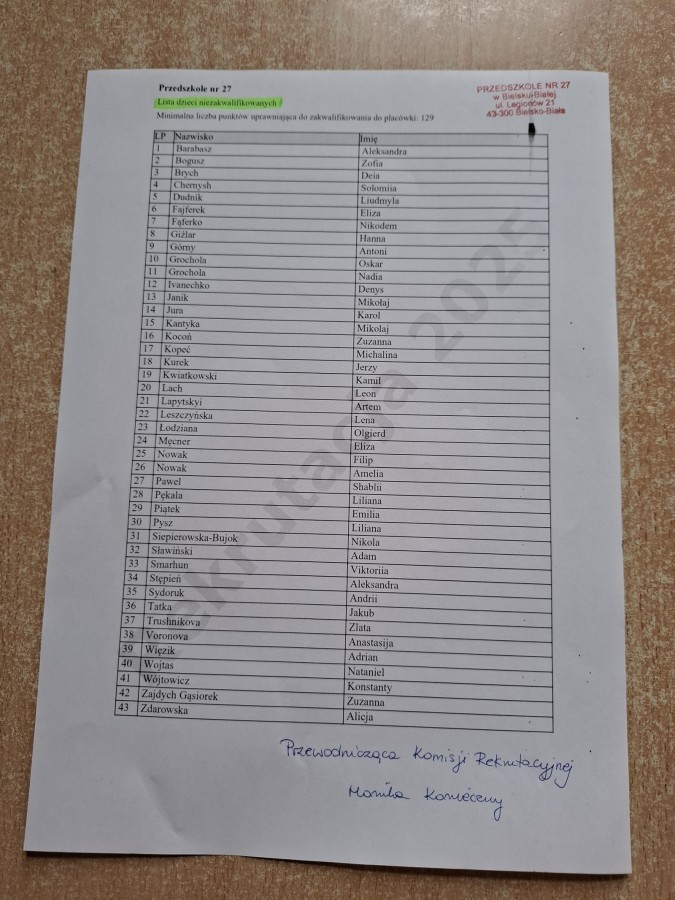 Przedszkole nr 27
Lista dzieci niezakwalifikowanych
Minimalna liczba punktów uprawniająca do zakwalifikowania do placówki: 129
PRZEDSZKOLE NR 27
w Bielsku-Białej
ul. Legionów 21
43-300 Bielsko-Biała
LP Nazwisko Imię
1 Barabasz Aleksandra
2 Bogusz Zofia
3 Brych Deia
4 Chernysh Solomiia
5 Dudnik Liudmyla
6 Fajferek Eliza
7 Fąferko Nikodem
8 Giżlar Hanna
9 Górny Antoni
10 Grochola Oskar
11 Grochola Nadia
12 Ivanechko Denys
13 Janik Mikołaj
14 Jura Karol
15 Kantyka Mikolaj
16 Kocoń Zuzanna
17 Kopeć Michalina
18 Kurek Jerzy
19 Kwiatkowski Kamil
20 Lach Leon
21 Lapytskyi Artem
22 Leszczyńska Lena
23 Łodziana Olgierd
24 Męcner Eliza
25 Nowak Filip
26 Nowak Amelia
27 Pawel Shablii
28 Pękala Liliana
29 Piątek Emilia
30 Pysz Liliana
31 Siepierowska-Bujok Nikola
32 Sławiński Adam
33 Smarhun Viktoriia
34 Stępień Aleksandra
35 Sydoruk Andrii
36 Tatka Jakub
37 Trushnikova Zlata
38 Voronova Anastasija
39 Więzik Adrian
40 Wojtas Nataniel
41 Wójtowicz Konstanty
42 Zajdych Gąsiorek Zuzanna
43 Zdarowska Alicja
ekrutacja 2025
Przewodnicząca Komisji Rekrutacyjnej
Monika Konieczny